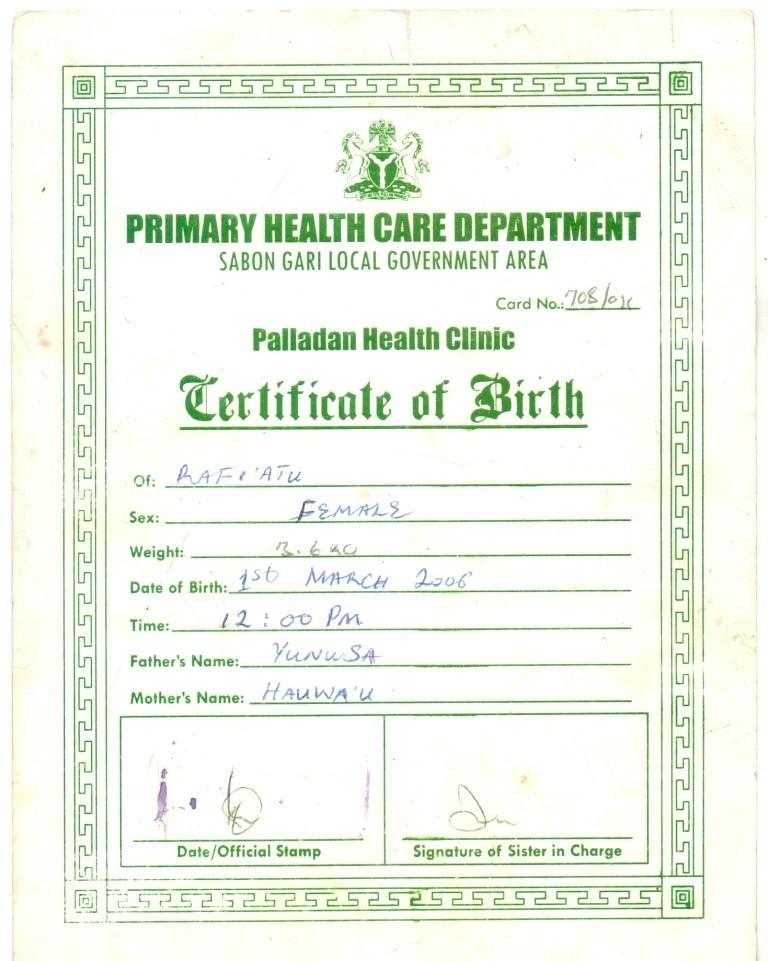 PRIMARY HEALTH CARE DEPARTMENT
SABON GARI LOCAL GOVERNMENT AREA
Card No.: 708/
Palladan Health Clinic
Certificate of Birth
Of: RAFI'ATU
Sex: FEMALE
Weight: 3.6 KG
Date of Birth: 1st MARCH 2006
Time: 12:00 PM
Father's Name: YUNUSA
Mother's Name: HAUWA'U
Date/Official Stamp
Signature of Sister in Charge